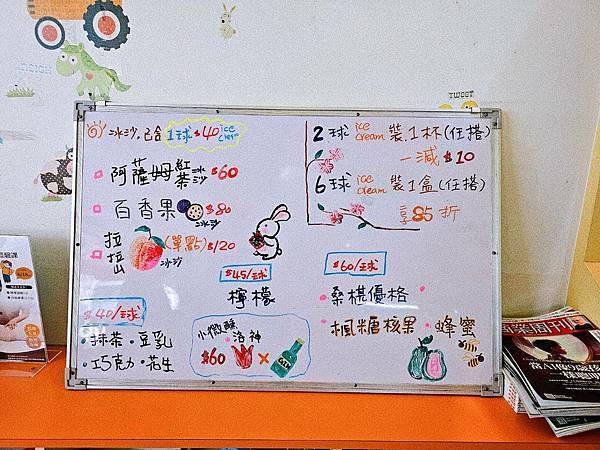 NEIGH
TWEET
冰沙,已含 1球$40 ice cream
阿薩姆紅茶冰沙 $60
百香果 冰沙 $80
拉拉山 冰沙 (單點) $120
2球 ice cream 裝1杯(任搭)
一減 $10
6球 ice cream 裝1盒(任搭)
享85折
$40/球
抹茶・豆乳
・巧克力・花生
$45/球
檸檬
小微醺
・洛神
$60 ×
$60/球
・桑椹優格
・楓糖核果・蜂蜜
商業周刊